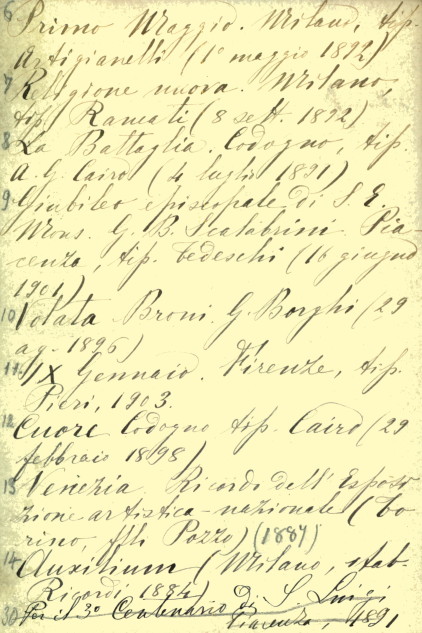 6 Primo Maggio. Milano, tip.
Artigianelli (1º maggio 1892)
7 Religione nuova. Milano,
tip. Rancati (8 sett. 1892)
8 La Battaglia. Codogno, tip.
A. G. Cairo (4 luglio 1891)
9 Giubileo episcopale di S. E.
Mons. G. B. Scalabrini. Pia-
cenza, tip. Tedeschi (16 giugno
1901)
10 Volata Broni. G. Borghi (29
ag. 1896)
11. IX Gennaio. Firenze, tip.
Pieri, 1903.
12 Cuore Codogno tip. Cairo (29
febbraio 1898)
13 Venezia. Ricordi dell' Esposi
zione artistica-nazionale (To
rino, flli Pozzo) (1887)
14 Auxilium (Milano, stab.
Ricordi, 1884)
30 Per il 3º Centenario di S. Luigi
Piacenza, 1891